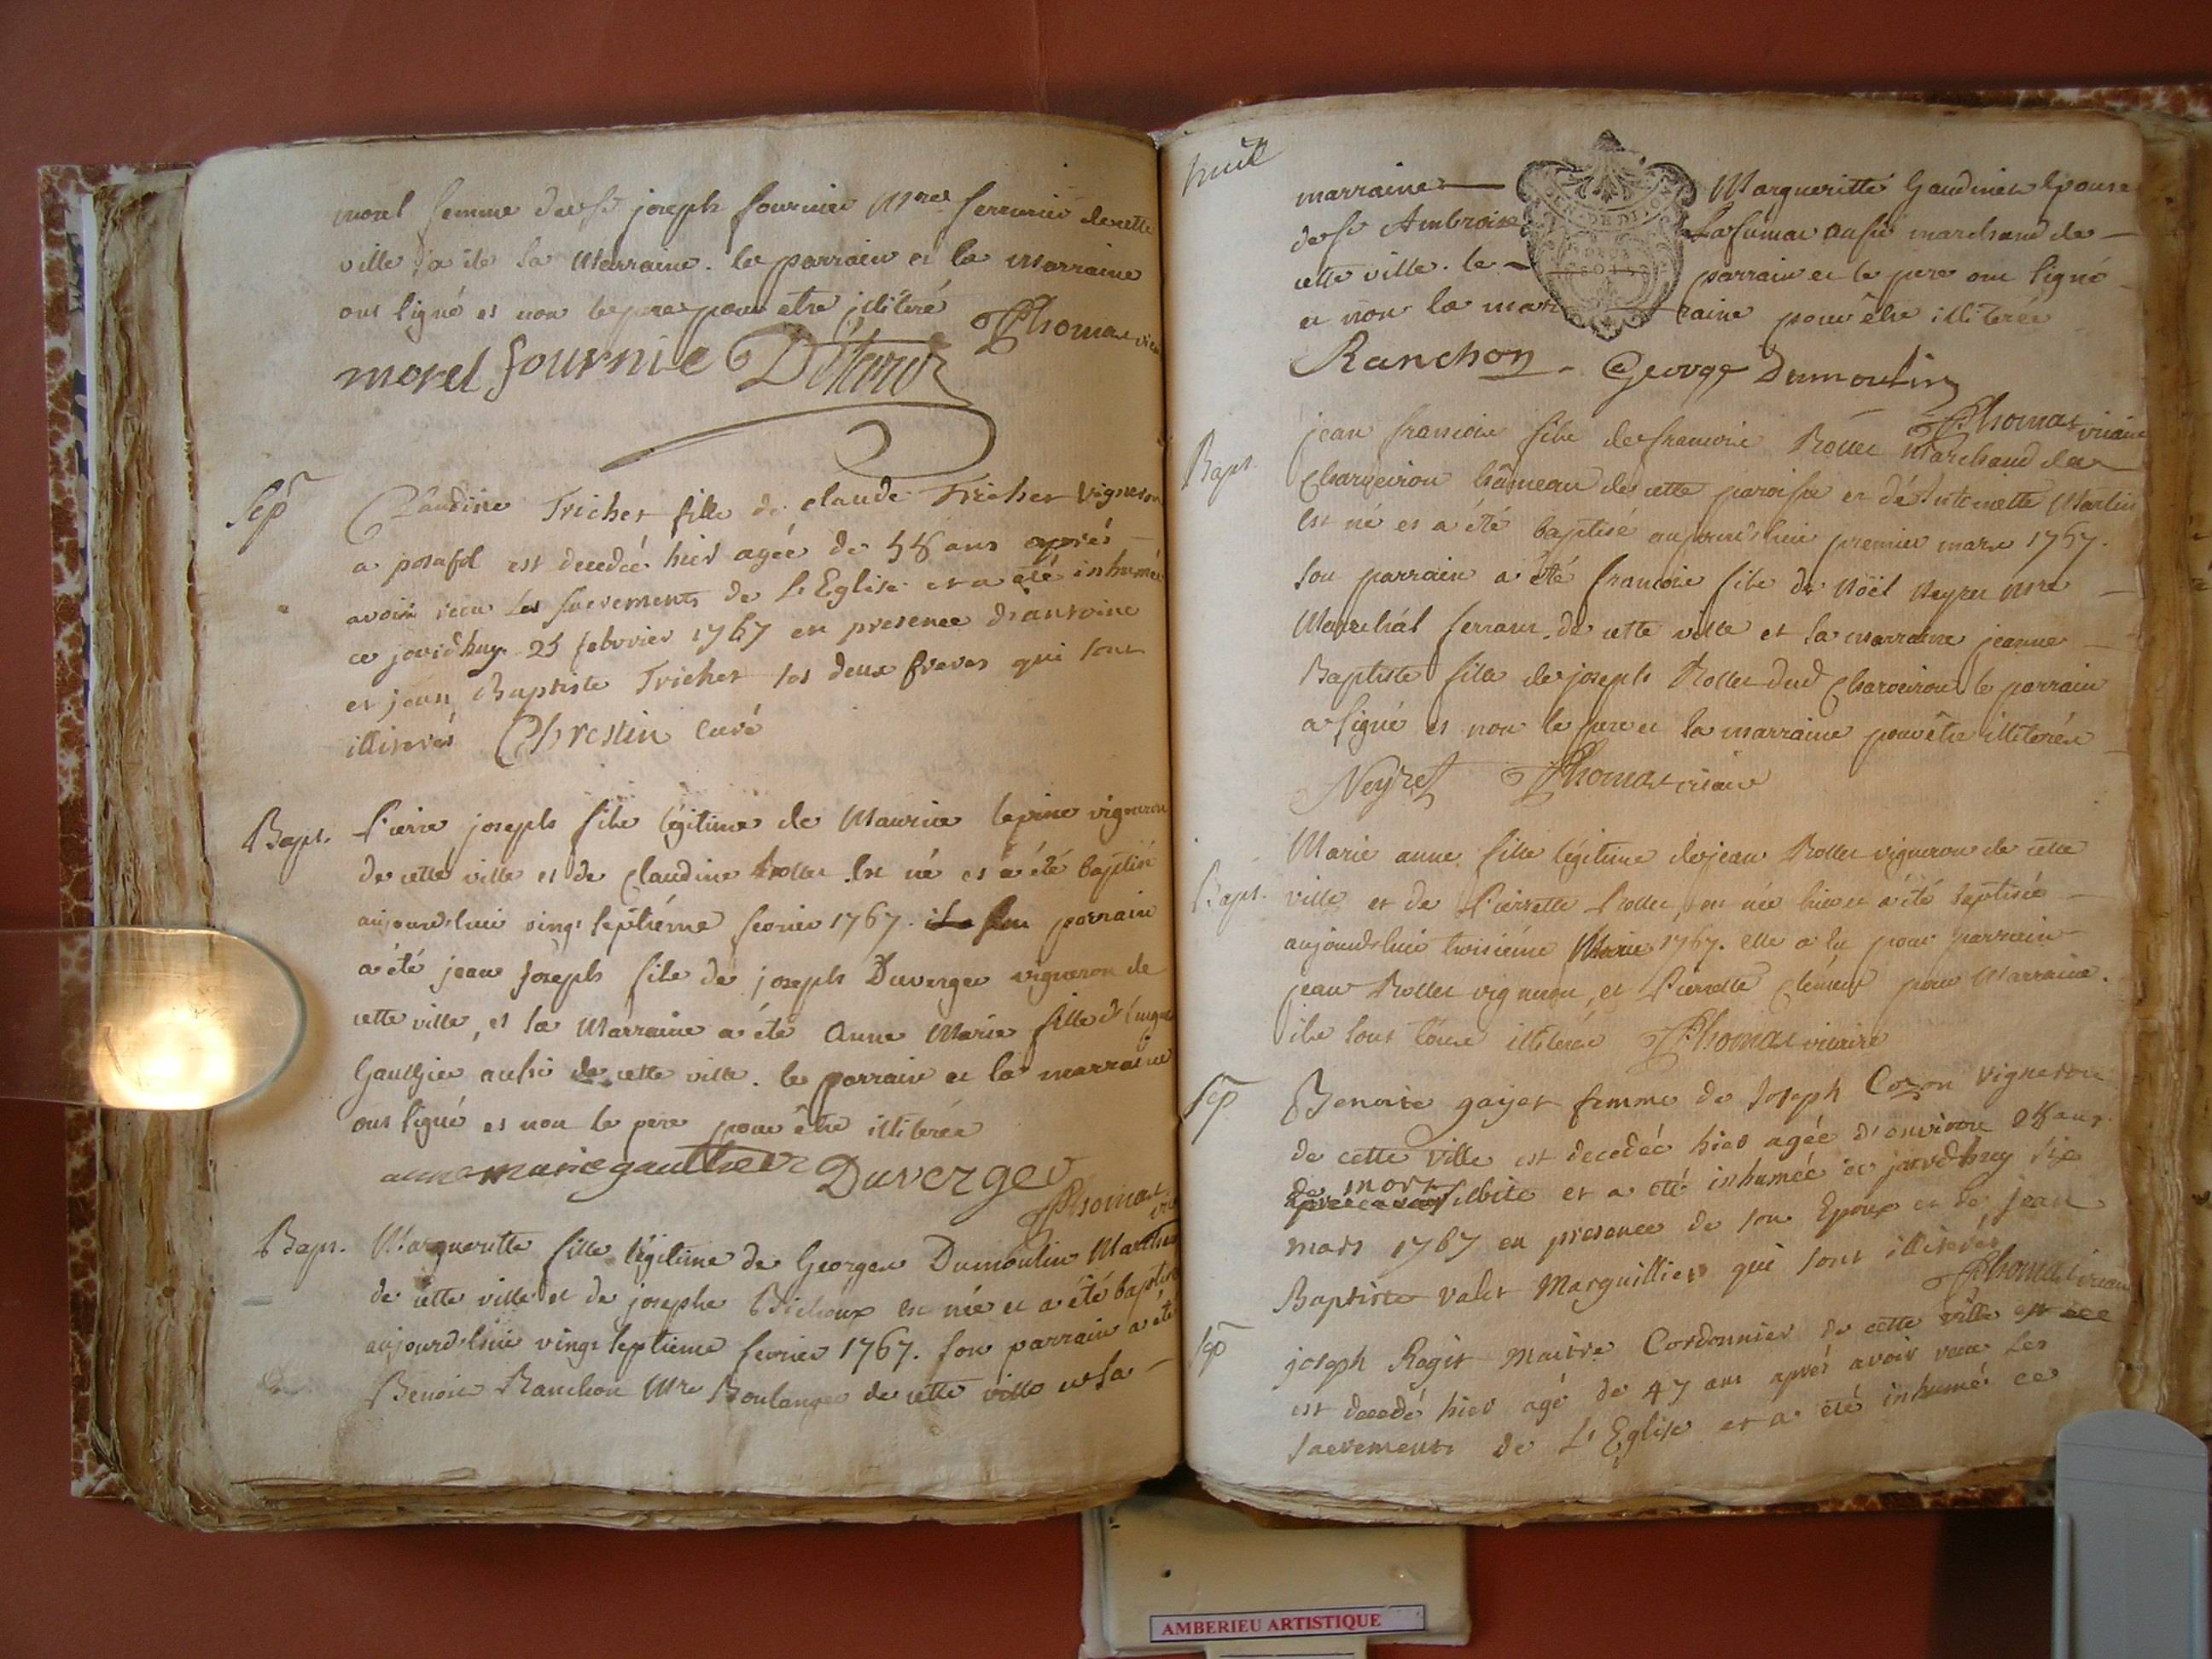 morel femme de sr joseph fournier Mre serrurier de cette
ville a été la Marraine. le parrain et la Marraine
ont signé et non le pere pour etre illiteré
Thomas vic
morel fournie
Sep
Claudine Trichet fille de claude Trichet Vigneron
a posafol est decedeé hier ageé de 58 ans aprés
avoir recu les sacrements de L'Eglise et a eté inhumeé
ce jourd'huy 25 febvrier 1767 en presence d'antoine
et jean Baptiste Trichet ses deux freres qui sont
illiterés Chrestin curé
Bapt.
Pierre joseph fils légitime de Maurice lepine vigneron
de cette ville et de Claudine Rollet est né et a été baptisé
aujourd'hui vingt septiéme fevrier 1767. son parrain
a été jean joseph fils de joseph Duverger vigneron de
cette ville, et la Marraine a été Anne Marie fille
Gauthier aussi de cette ville. le parrain et la marraine
ont signé et non le pere pour être illiterés
anne marie gauthier Duverger
Thomas vic
Bapt.
Margueritte fille légitime de Georges Dumoulin Marchand
de cette ville et de josephe est née et a été baptisée
aujourd'hui vingt septieme fevrier 1767. son parrain a été
Benoit Ranchon Mre Boulanger de cette ville et la
huit
marraine Margueritte Gaudinet Epouse
de sr Ambroise Lafumat aussi marchand de
cette ville. le parrain et le pere ont signé
et non la marraine pour être illiterée
GEN. DE DIJON
Ranchon George Dumoulin
Thomas vicaire
Bapt.
jean francois fils de francois Rollet Marchand de
Chargeiron hâmeau de cette paroisse et dé Antoinette Martin
est né et a été baptisé aujourd'hui premier mars 1767.
son parrain a été francois fils de Noël Neyret Mre
Marechál ferrant de cette ville et la marraine jeanne
Baptiste fille de joseph Rollet dud Chargeiron le parrain
a signé et non le pere et la marraine pour être illiterés
Neyret Thomas vicaire
Bapt.
Marie anne fille légitime de jean Rollet vigneron de cette
ville et de Pierrette Rollet, est née hier et a été baptisée
aujourd'hui troisiéme Mars 1767. elle a eu pour parrain
jean Rollet vigneron, et Pierrette Clément pour Marraine.
ils sont tous illiterés Thomas vicaire
Sep
Benoite gayet femme de Joseph Cozon Vigneron
de cette ville est decedeé hier ageé d'environ ans
de mort subite et a eté inhumeé ce jourd'huy six
mars 1767 en presence de son Epoux et de jean
Baptiste valet Marguillier qui sont illiterés
Thomas vicaire
Sep
joseph Rogit maitre Cordonnier de cette ville
est decedé hier agé de 47 ans aprés avoir recu les
sacrements de L'Eglise et a eté inhumé ce
AMBERIEU ARTISTIQUE